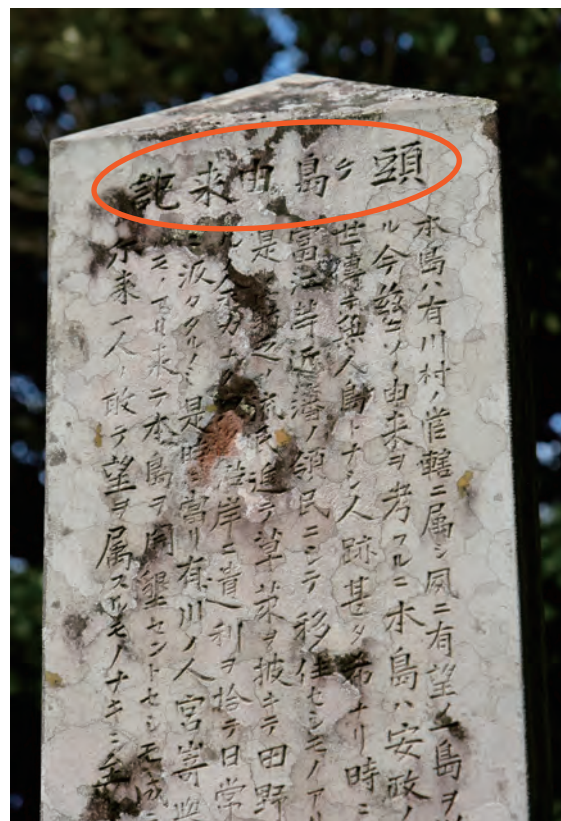 頭ヶ島由来記
本島ハ有川村ノ管轄ニ属シ夙ニ有望ノ一島ヲ
ル今茲ニソノ由来ヲ考フルニ本島ハ安政ノ
人跡甚タ希ナリ時ニ
富江等近藩ノ領民ニシテ移住セシモノアリ
是 流民進テ草莱ヲ披キテ田野
ル余力ナク 岸ニ遺利ヲ拾テ日常
ニ汲々タルノミ是時ニ當リ有川ノ人宮嵜
来テ本島ヲ開墾セントセシモ成
尓来一人ノ敢テ望ヲ属スルモノナキニ至